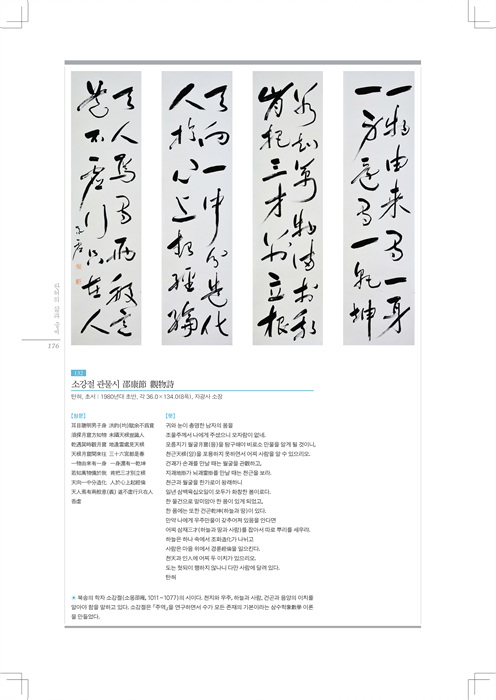 一物由来有一身
一身還有一乾坤
若知萬物備於我
肯把三才別立根
天向一中分造化
人於心上起經綸
天人焉有兩般意
道不虛行只在人
呑虛
탄허의 삶과
176
132
소강절 관물시 邵康節 觀物詩
탄허, 초서 | 1980년대 초반, 각 36.0×134.0(8폭), 자광사 소장
【원문】
耳目聰明男子身 洪鈞(均)賦余不爲貧
須探月窟方知物 未躡天根豈識人
乾遇巽時觀月窟 地逢雷處見天根
天根月窟閒來往 三十六宮都是春
一物由來有一身 一身還有一乾坤
若知萬物備於我 肯把三才別立根
天向一中分造化 人於心上起經綸
天人焉有兩般意(義) 道不虛行只在人
呑虛
【역】
귀와 눈이 총명한 남자의 몸을
조물주께서 나에게 주셨으니 모자람이 없네.
모름지기 월굴月窟(음)을 탐구해야 비로소 만물을 알게 될 것이니,
천근天根(양)을 포용하지 못하면서 어찌 사람을 알 수 있으리오.
건괘가 손괘를 만날 때는 월굴을 관觀하고,
지괘地卦가 뇌괘雷卦를 만날 때는 천근을 보라.
천근과 월굴을 한가로이 왕래하니
일년 삼백육십오일이 모두가 화창한 봄이로다.
한 물건으로 말미암아 한 몸이 있게 되었고,
한 몸에는 또한 건곤乾坤(하늘과 땅)이 있다.
만약 나에게 우주만물이 갖추어져 있음을 안다면
어찌 삼재三才(하늘과 땅과 사람)를 잡아서 따로 뿌리를 세우랴.
하늘은 하나 속에서 조화造化가 나뉘고
사람은 마음 위에서 경륜經綸을 일으킨다.
천天과 인人에 어찌 두 이치가 있으리오.
도는 헛되이 행하지 않나니 다만 사람에 달려 있다.
탄허
* 북송의 학자 소강절(소옹邵雍, 1011~1077)의 시이다. 천지와 우주, 하늘과 사람, 건곤과 음양의 이치를
알아야 함을 말하고 있다. 소강절은 『주역』을 연구하면서 수가 모든 존재의 기본이라는 상수학象數學 이론
을 만들었다.